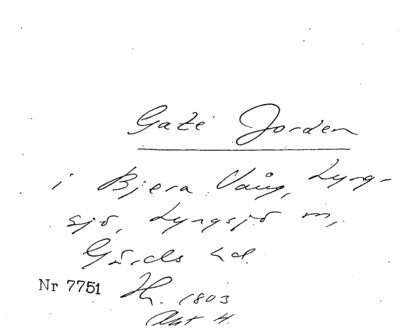 Gaté Jorden
i Bjera Vång, Lyng-
sjö, Lyngsjö sn,
Gärds hd
Nr 7751 Hh. 1803
Akt 4.